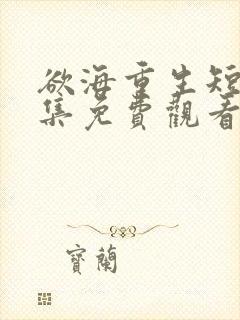 欲海重生短
集免費觀看
寶蘭